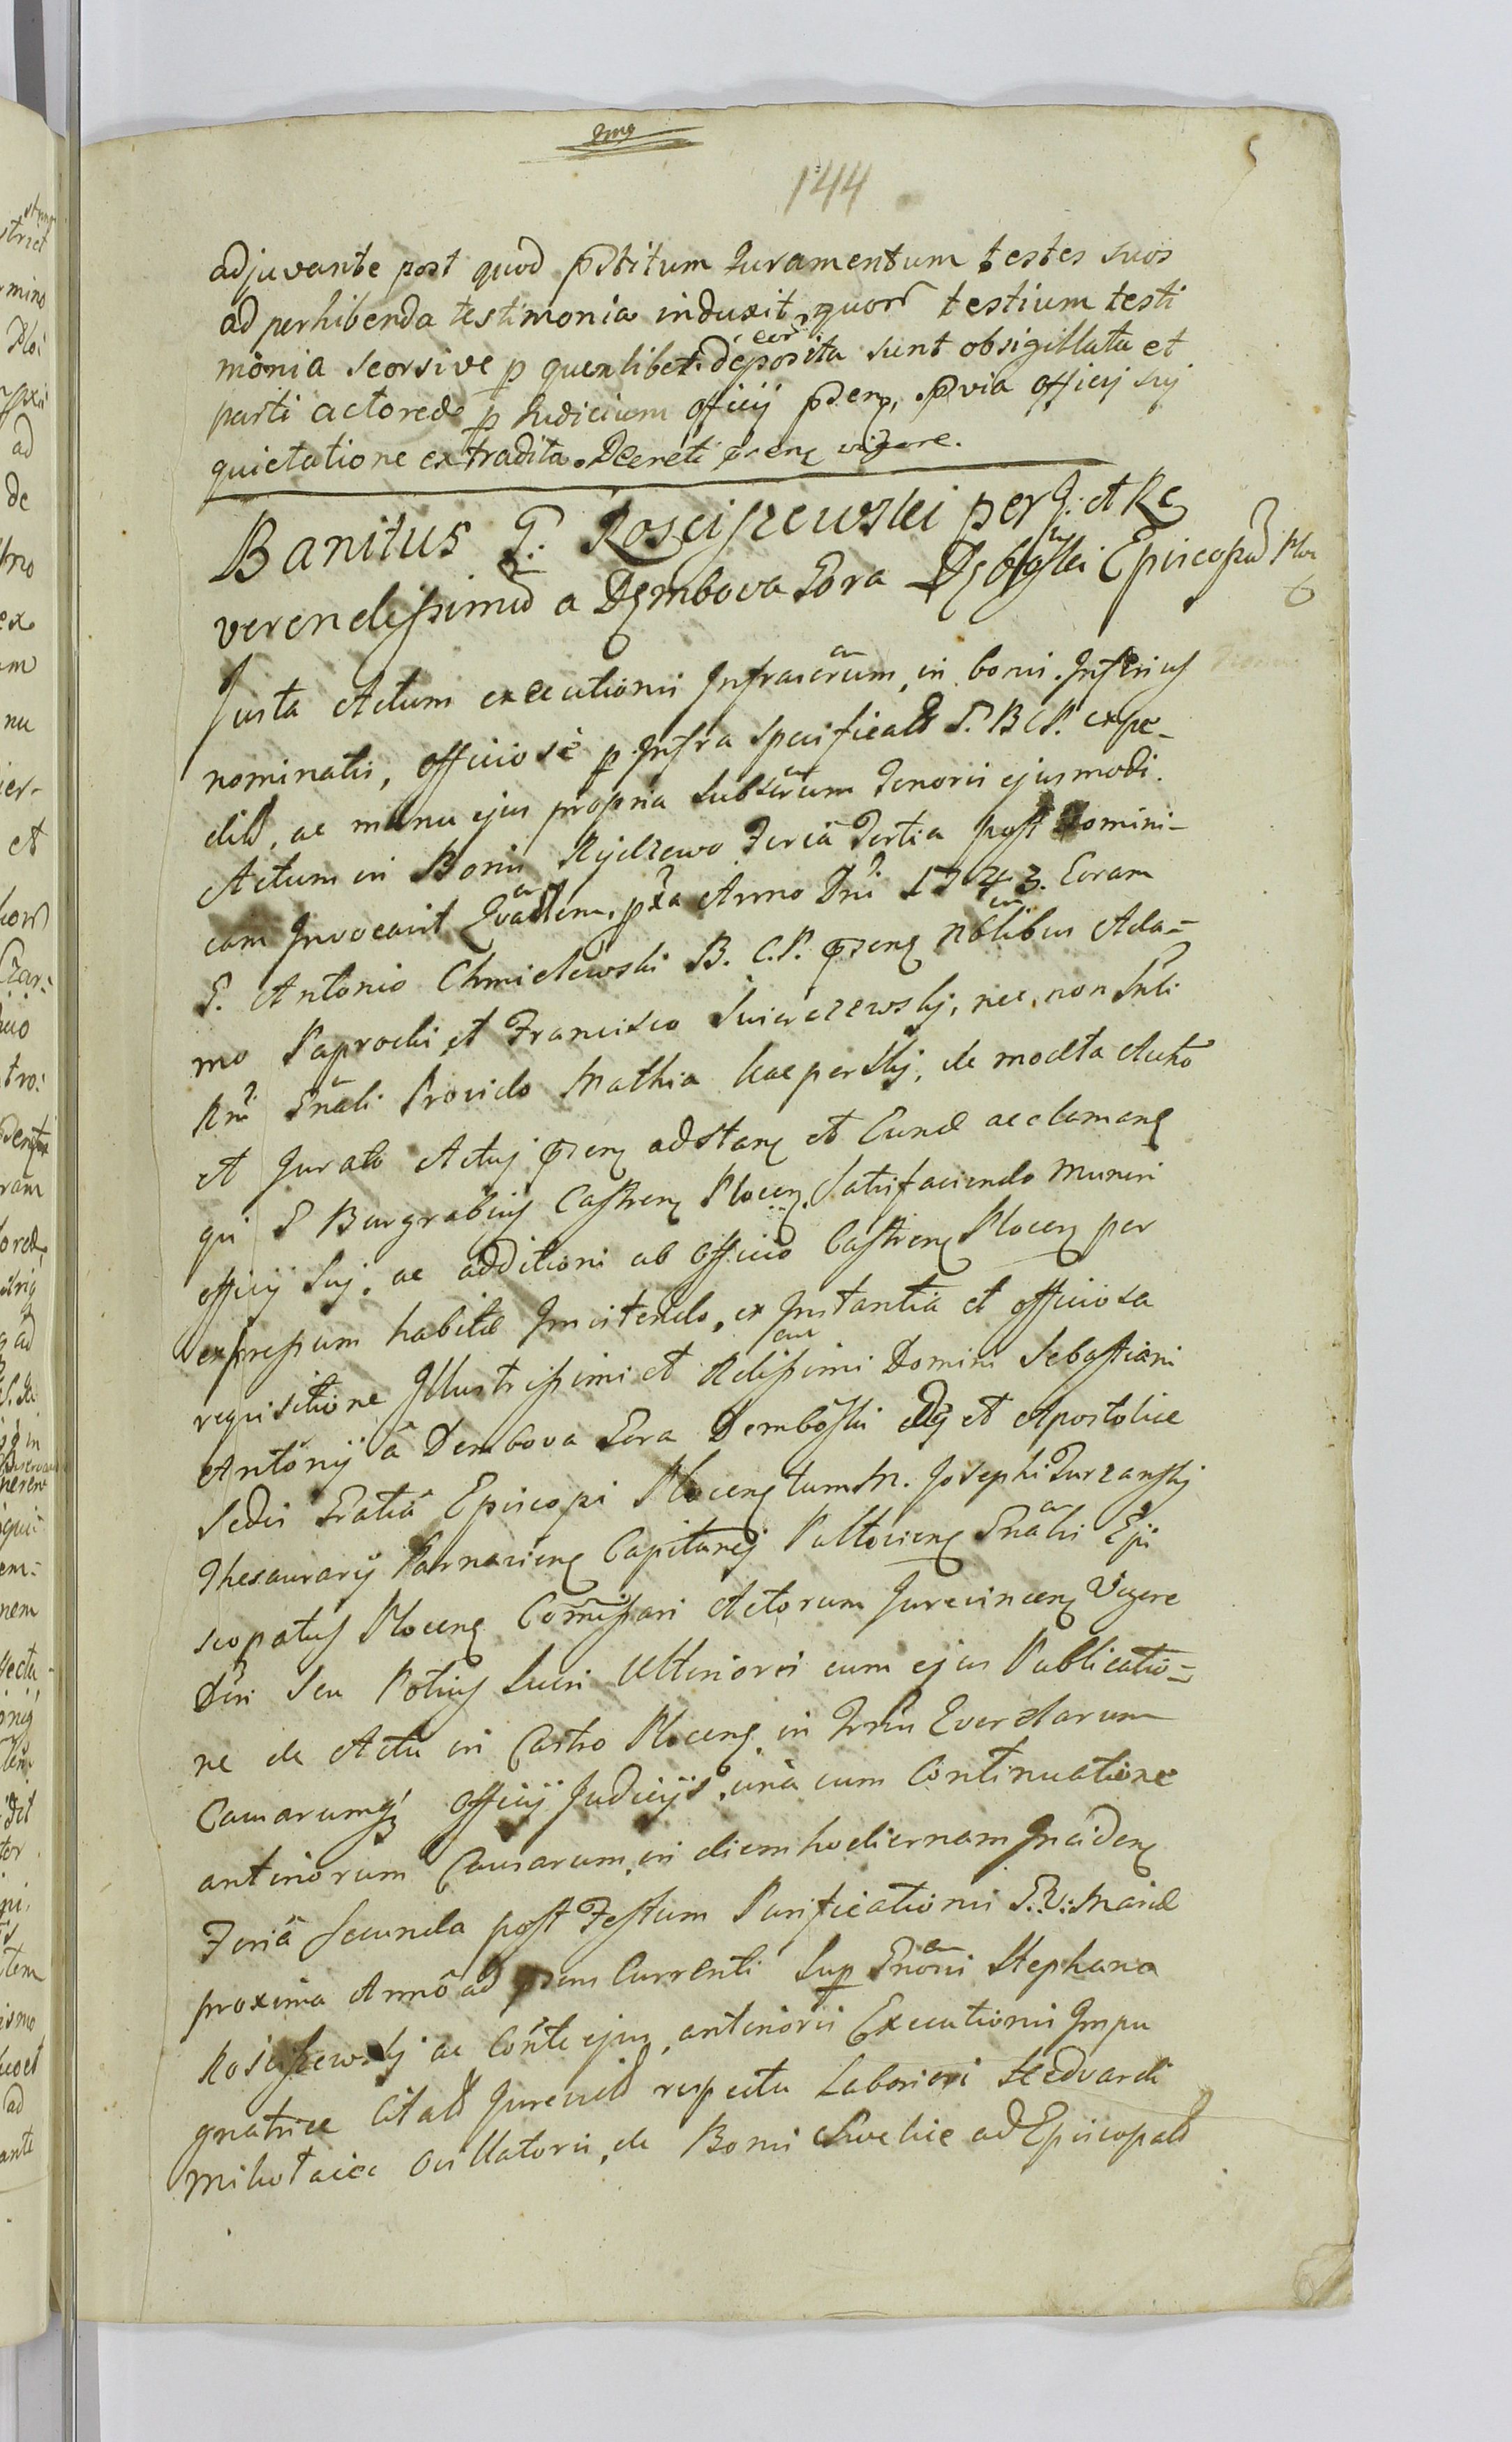 144
adjuvante post quod pstitum Juramentum testes suos
ad perhibenda testimonia induxit, quor testium testi
monia seorsive p quemlibet eor deposita sunt obsigillata et
parti actored p Judicium officij psens, pvia officij suj
quietatione extradita. Decreti psens vigore.
Banitus G. Rosciszewski per J. et Re
verendissimū a Dembowa Gora Dęboski Episcopū Plo
Justa Actum executionis Infrascrūm, in bonis Inferius
nominatis, officiose p Infra specificatū G. B C P. expe-
ditū, ac manu ejus propria subscrūm tenoris ejusmodi.
Actum in Bonis Rydzewo Feria Tertia post Domini-
cam Invocavit Quadlem. pxa Anno Dni 1743. Coram
G. Antonio Chmielewski B. C. P. psens Nōlibus Ada=
mo Paprocki et Francisco Swierczewskj, nec non Mli
Rni Gnāli Provido Mathia Kacperskj, de modta Autho
et Jurato Actuj psens adstans et Eund acclamans
qui G Burgrabius Castrens Plocens. Satisfaciendo Muneri
officij Suj, ac additioni ab officio Castrens Plocens per
expressum habitæ Innitendo, ex Instantia et officiosa
requisitione Illustrissimi et Rdissimi Domini Sebastiani
Antonij â Dembova Gora Dembōski Dej et Apostolice
Sedis Gratiâ Episcopi Plocens tum M. Josephi Turzanskj
Thesaurarij Parnaviens Capitanej Pultoviens Gnālis Epi
scopatus Plocens Comissari Actorum Jurevincens Vigore
Dtri Seu Potius Lucri Ulterioris cum ejus Publicatio=
ne de Actu in Castro Plocens in Trmis Querelarum
Causarumq officij Judicijs, una cum Continuatione
anteriorum Causarum, in diem hodiernam Incidens
Feriâ Secunda post Festum Purificationis B. V: Mariæ
proxima Anno ad psens Currenti Sup Gnōsi Stephano
Rosciszewskj ac Conte ejus, anterioris Executionis Impu
gnatrice Citatū Jurevictū respectu Laboriosi
Mikołaice Oillatoris, de Bonis ad Episcopatū